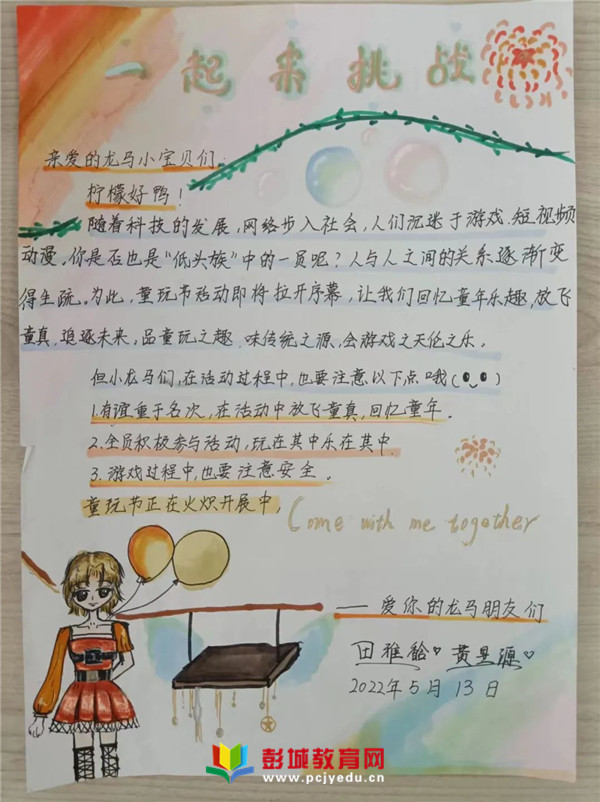 一起来挑战
亲爱的龙马小宝贝们：
柠檬好鸭！
随着科技的发展，网络步入社会，人们沉迷于游戏、短视频
动漫。你是否也是“低头族”中的一员呢？人与人之间的关系逐渐变
得生疏。为此，童玩节活动即将拉开序幕，让我们回忆童年乐趣，放飞
童真，追逐未来，品童玩之趣，味传统之源，会游戏之天伦之乐。
但小龙马们，在活动过程中，也要注意以下点哦(●◡●)
1.友谊重于名次，在活动中放飞童真，回忆童年。
2.全员积极参与活动，玩在其中乐在其中.
3.游戏过程中，也要注意安全。
童玩节正在火炽开展中，
Come with me together
——爱你的龙马朋友们
田雅 黄 源
2022年5月13日
彭城教育网
www.pcjyedu.cn